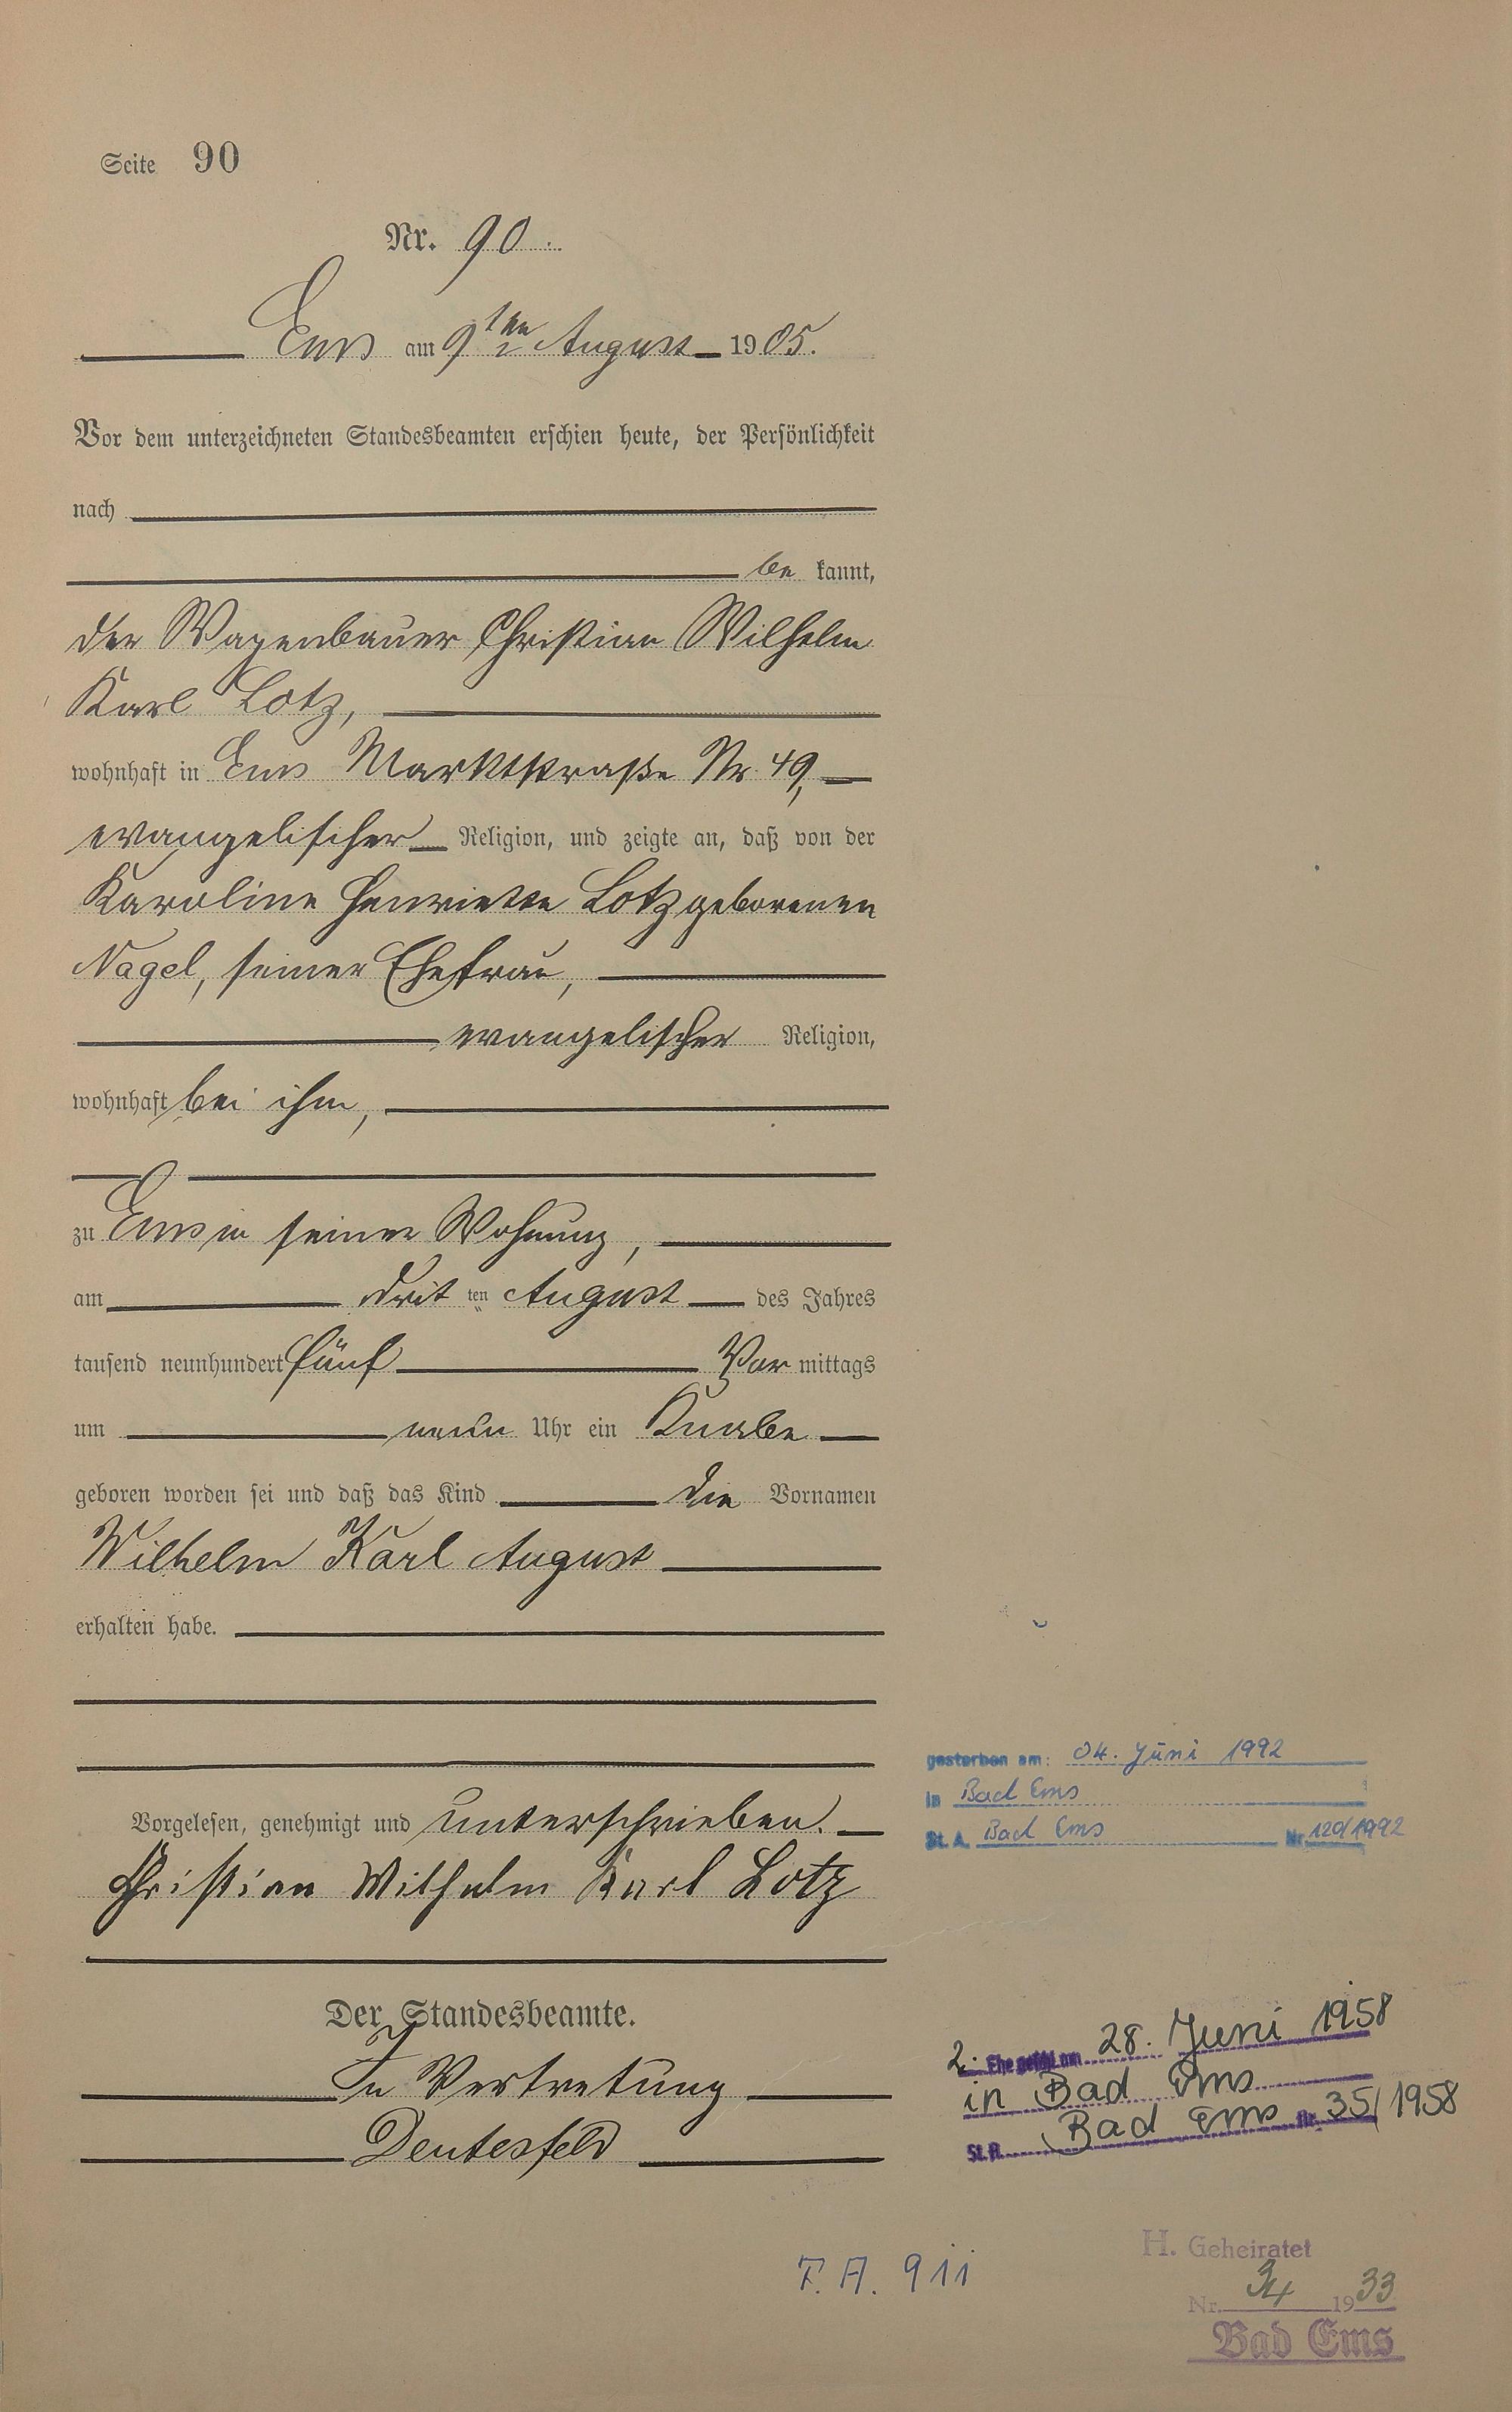 Seite 90
Nr. 90.
Ems am 9ten August 1905.
Vor dem unterzeichneten Standesbeamten erschien heute, der Persönlichkeit
nach
be kannt,
der Wagenbauer Christian Wilhelm
Karl Lotz,
wohnhaft in Ems Marktstraße Nr. 49,
evangelischer Religion, und zeigte an, daß von der
Karoline Henriette Lotz geborenen
Nagel, seiner Ehefrau,
evangelischer Religion,
wohnhaft bei ihm,
zu Ems in seiner Wohnung,
am drit ten August des Jahres
tausend neunhundert fünf Vor mittags
um neun Uhr ein Knabe
geboren worden sei und daß das Kind die Vornamen
Wilhelm Karl August
erhalten habe.
Vorgelesen, genehmigt und unterschrieben.
Christian Wilhelm Karl Lotz
Der Standesbeamte.
In Vertretung
Deutesfeld
gestorben am: 04. Juni 1992
in Bad Ems
St. A. Bad Ems Nr. 120/1992
2. Ehe geschl. am 28. Juni 1958
in Bad Ems
St. A. Bad Ems Nr. 35/1958
F. A. 911
H. Geheiratet
Nr. 34 1933
Bad Ems